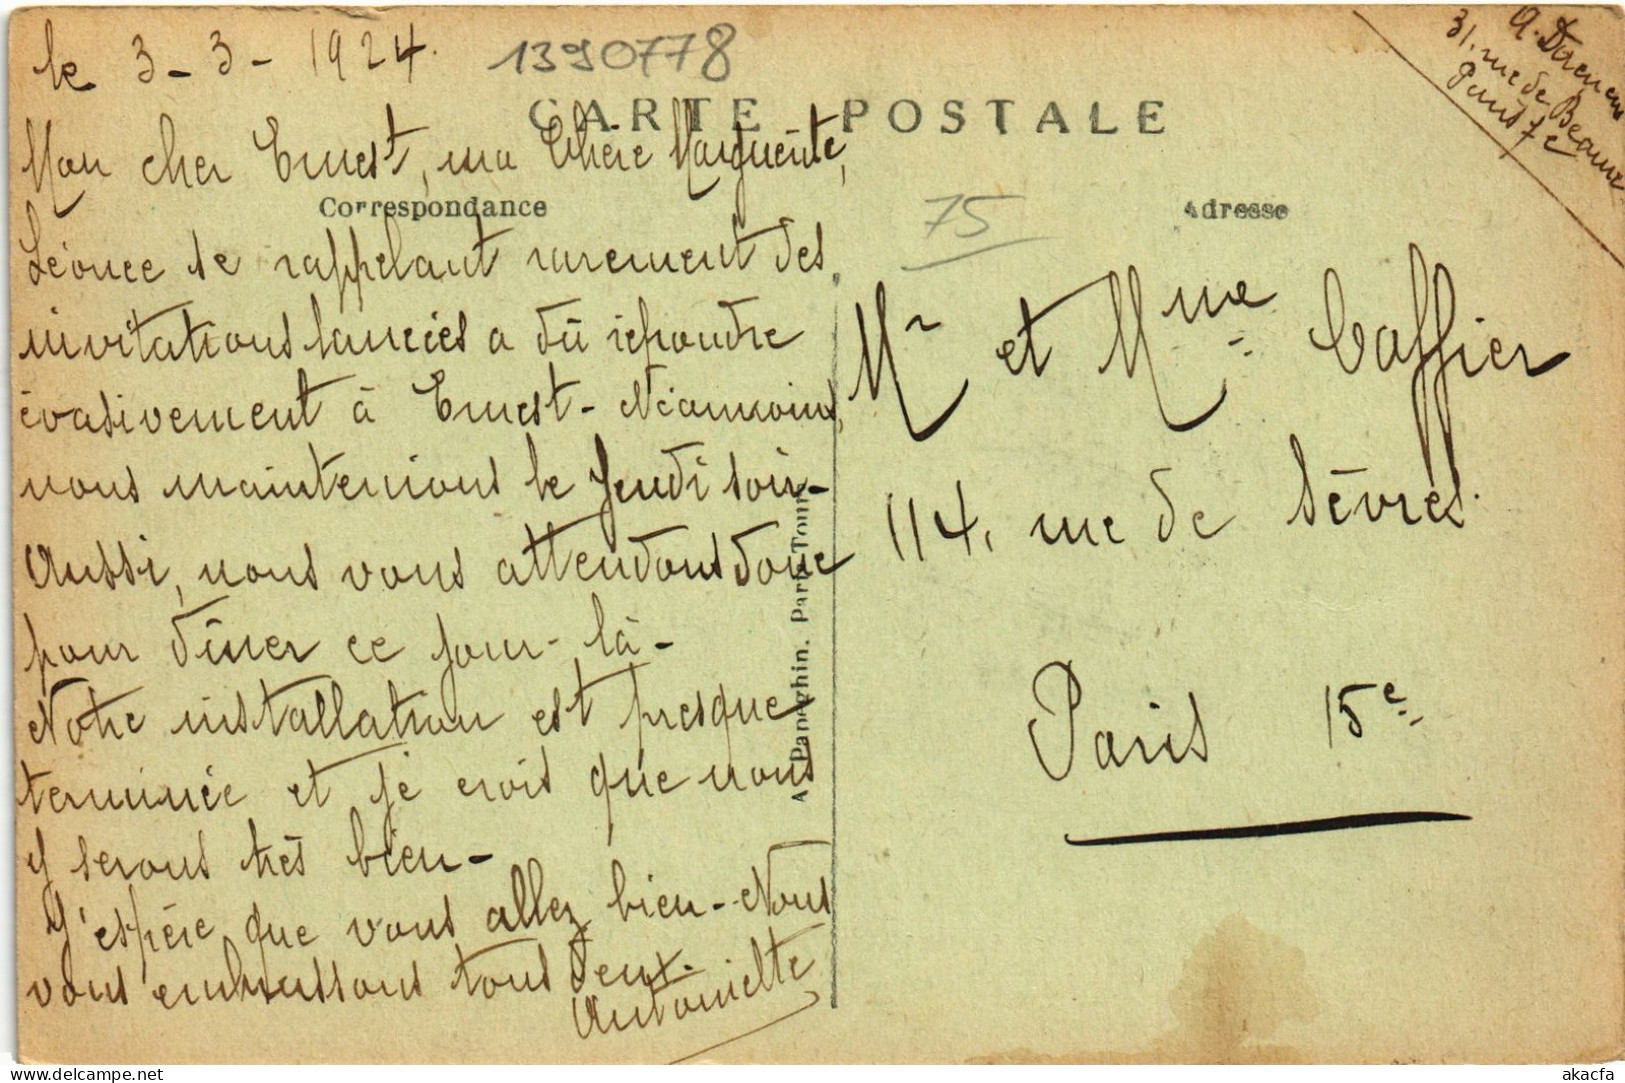 le 3-3-1924.
1390778
CARTE POSTALE
Mon cher Ernest, ma Chère Marguerite,
Correspondance
Léonce se rappelant rarement des
invitations lancées a dû répondre
évasivement à Ernest - Néanmoins,
nous maintenions le Jeudi soir -
Aussi, nous vous attendons donc
pour dîner ce jour-là -
Notre installation est presque
terminée et je crois que nous
y serons très bien -
J'espère que vous allez bien - Nous
vous embrassons tous deux.
Antoinette
A. Papeghin. Paris-Tours
A.
31, rue de Beaune
Paris 7e
75
Adresse
Mr et Mme Caffier
114, rue de Sèvres.
Paris 15e
delcampe.net
akacfa